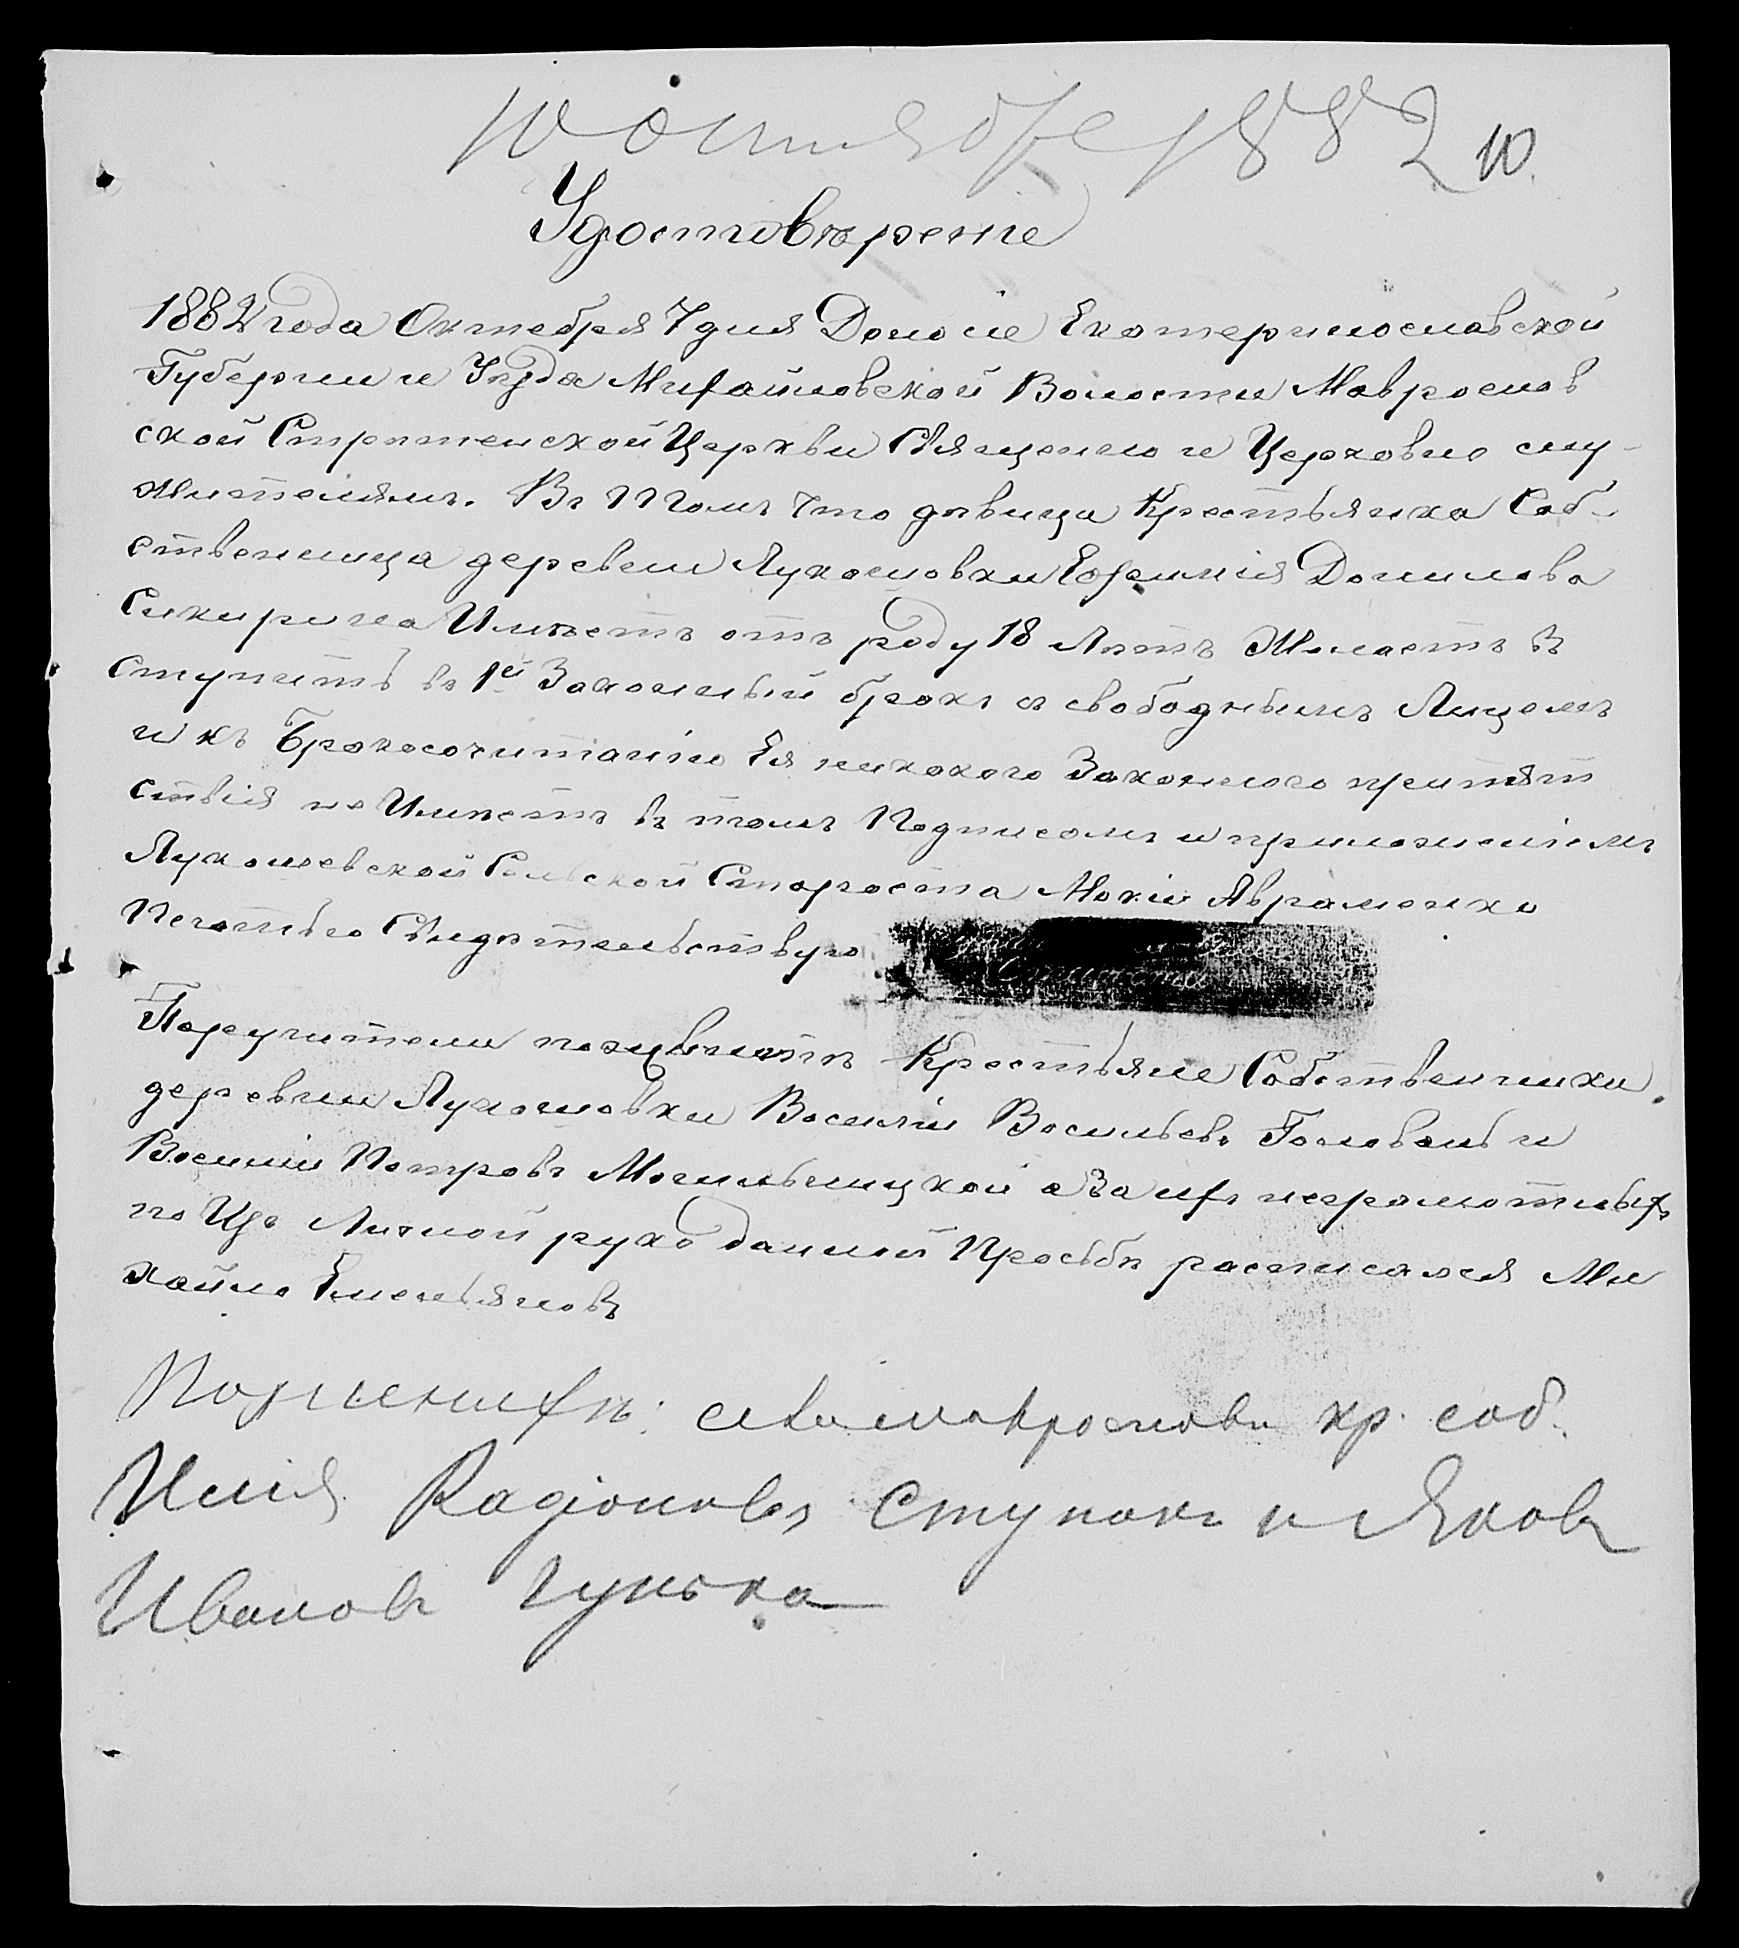 10 октября 1882 10
Удостовѣрение
1882 года Октебря 7 дня Доносе Екатеринославской
Губернии и Уѣзда Михайловской Волости Мавринов
ской Стритенской Церкви Священо и Церковно слу-
жителямъ. Въ Томъ что дѣвица Крестьянка Соб-
ственница деревни Лукашовки Ефимия Данилова
Сикирина Имѣетъ отъ роду 18 Лѣтъ Желаетъ в
ступитъ въ 1й Законный бракъ с свободнымъ Лицомъ
и къ Бракосочитанію Ея никакого Законного припят
ствія не Имѣетъ въ томъ Подписомъ и приложениемъ
Лукашевской Сельской Староста Мокій Авраменко
Печатью Свидѣтельствую
Поручители по невѣсте Крестьяне Собственники
деревни Лукашовки Василий Васильевъ Головань и
Василий Петровъ Могильницкой а За ихъ неграмотныхъ
по Ихъ Личной рукоданной Просьбѣ росписался Ми
хайло Емельяновъ
По женихѣ: кр. соб.
Илія Радіоновъ Ступакъ и Яковъ
Ивановъ Гунька